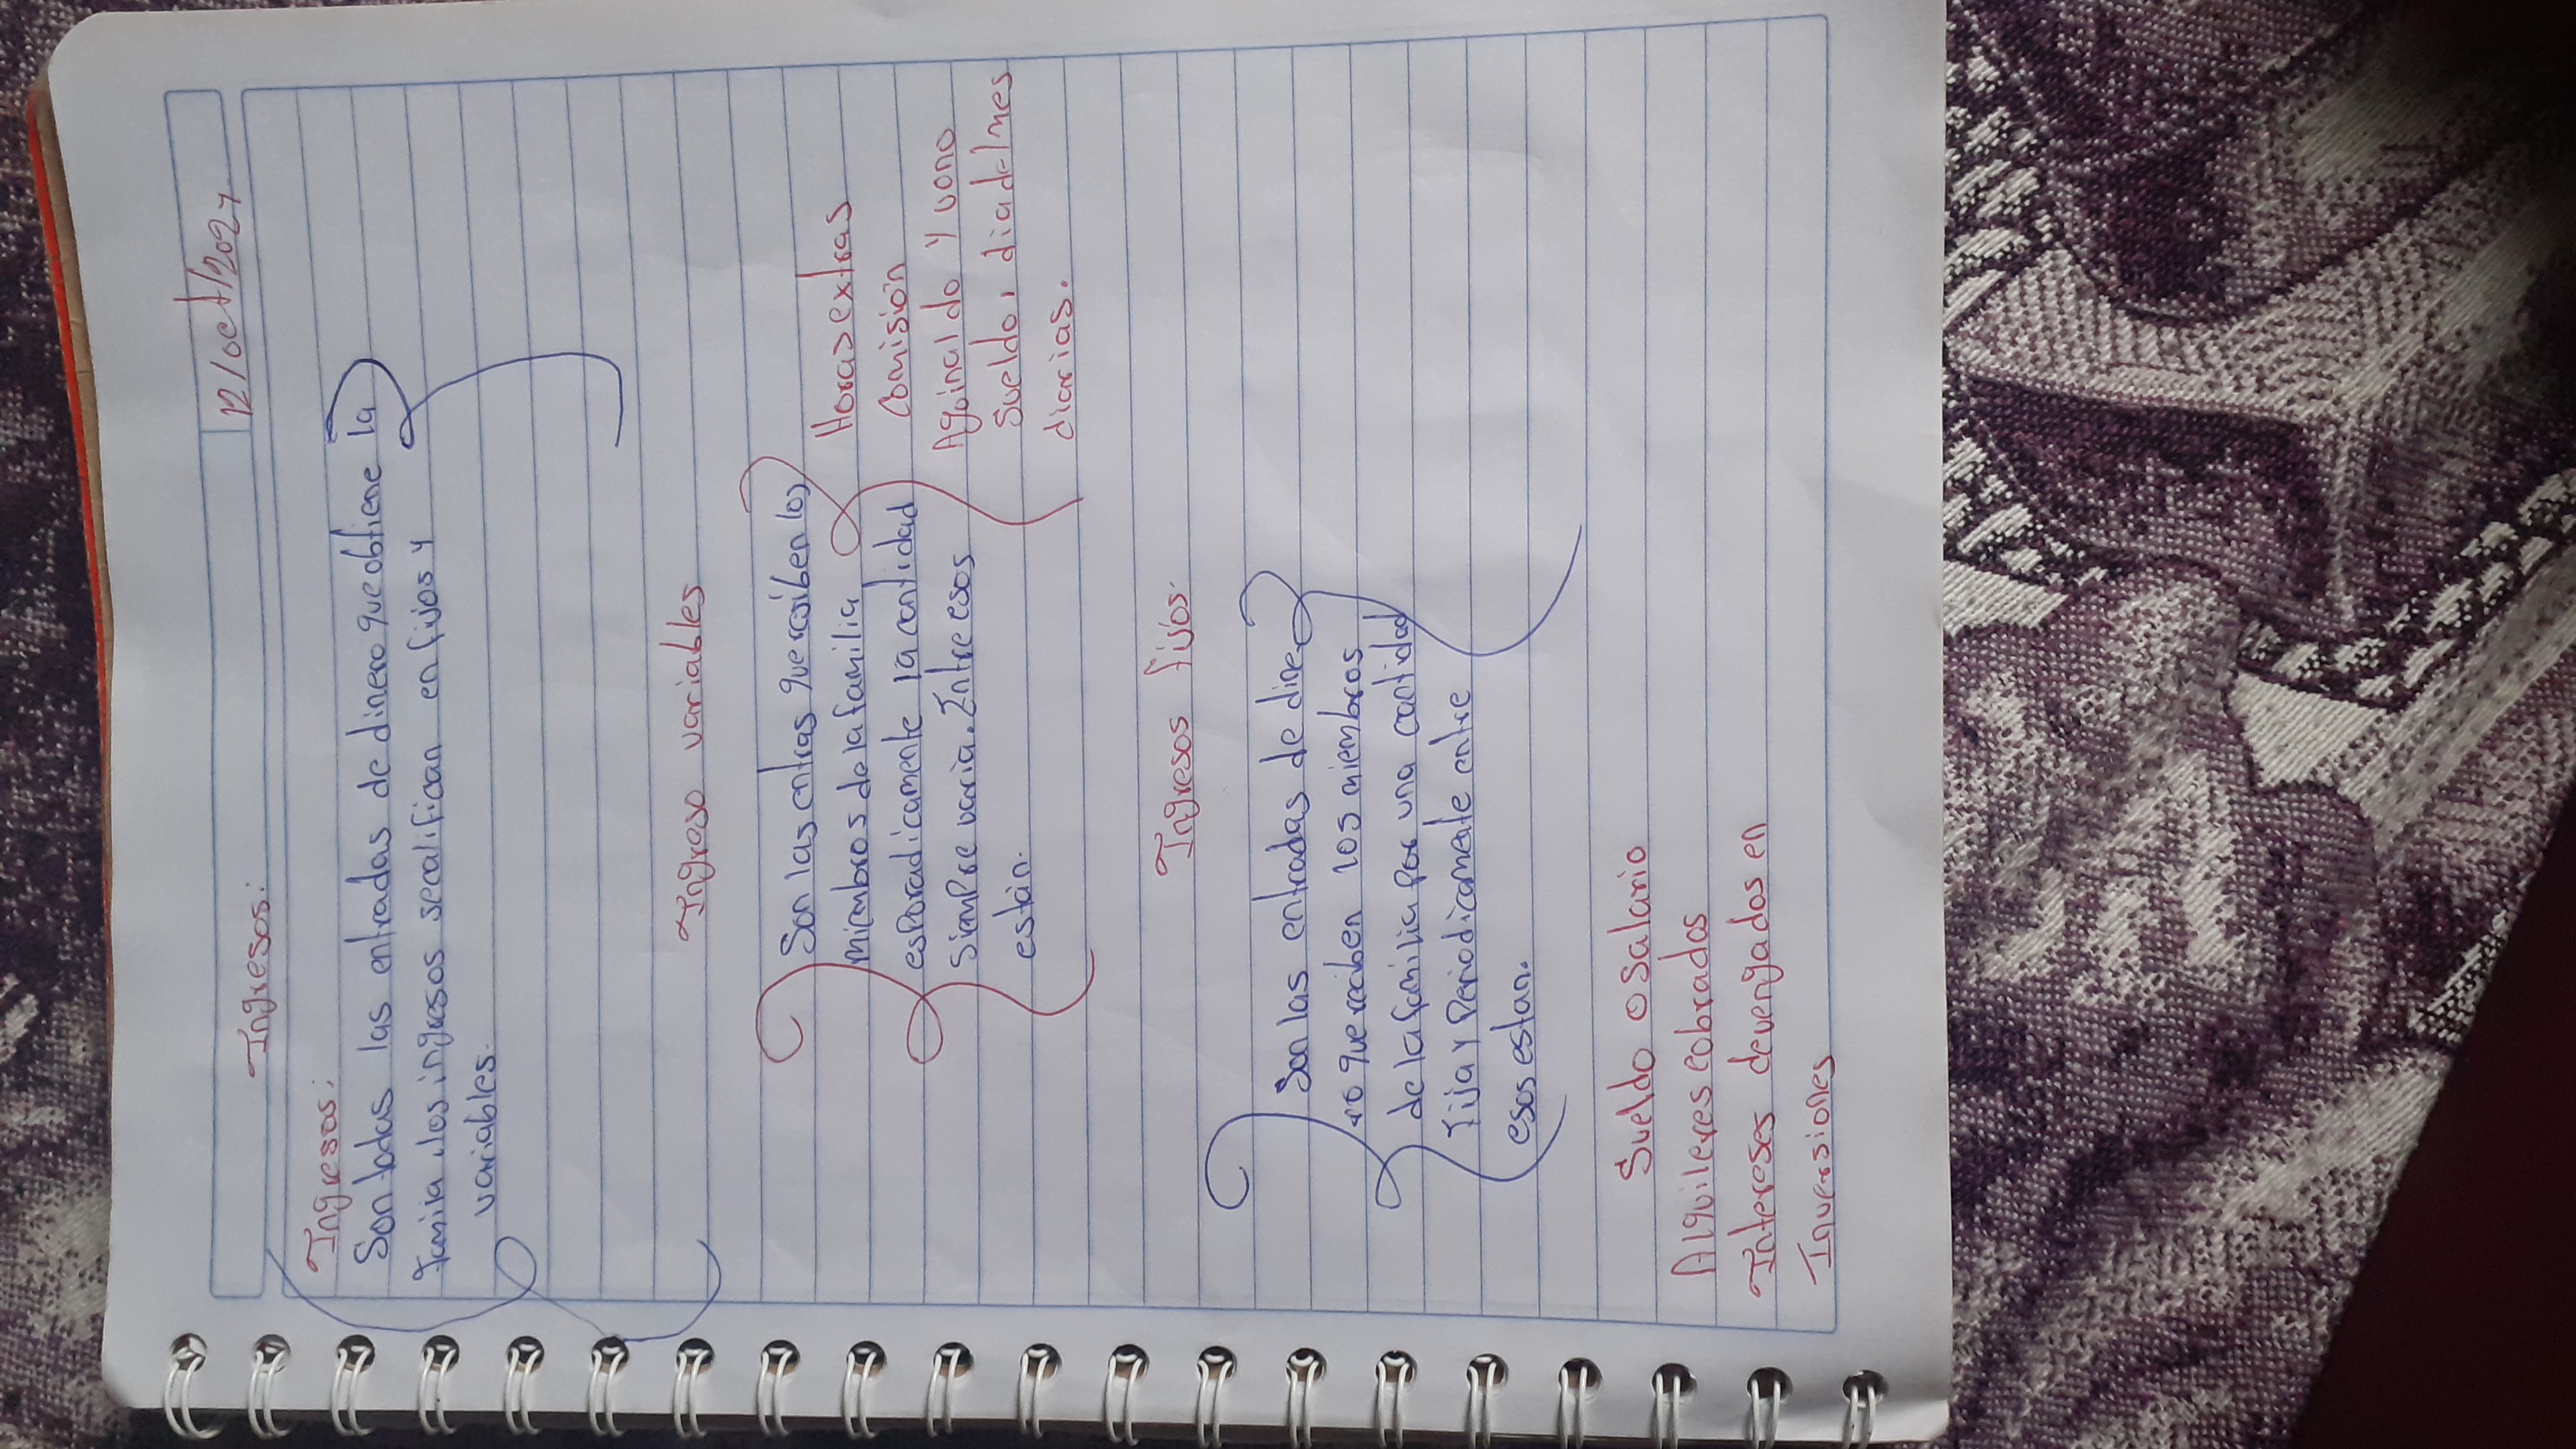 12/oct/2024
Ingresos:
Ingresos:
Son todas las entradas de dinero que obtiene la
familia, los ingresos secalifican en fijos y
variables.
Ingreso variables
Son las entras que reciben los
miembros de la familia
esporadicamente la cantidad
siempre varia. Entre esos
están.
Horas extras
Comisión
Aguinaldo y vono
Sueldo, dia del mes
diarias.
Ingresos fijos.
Son las entradas de dine
ro que reciben los miembros
de la familia por una cantidad
fija y Periodicamente entre
esos estan.
Sueldo o salario
Alquileres cobrados
Intereses devengados en
Inversiones